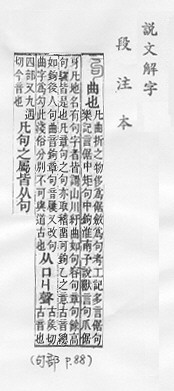 說文解字
段注本
句 曲也 凡曲折之物侈爲倨斂爲句考工記多言倨句
樂記言倨中矩句中鉤淮南子說獸言句爪倨
牙凡地名有句字者皆謂山川紆曲如句容句章句餘高
句驪皆是也凡章句之句亦取稽畱可鉤乙之意古音總
如鉤後人句曲音鉤章句音屨又改句
曲字爲勾此淺俗分別不可與道古也
从口丩聲 古音也
古矦切
四部又九遇
切今音也
凡句之屬皆从句
(句部 P.88)